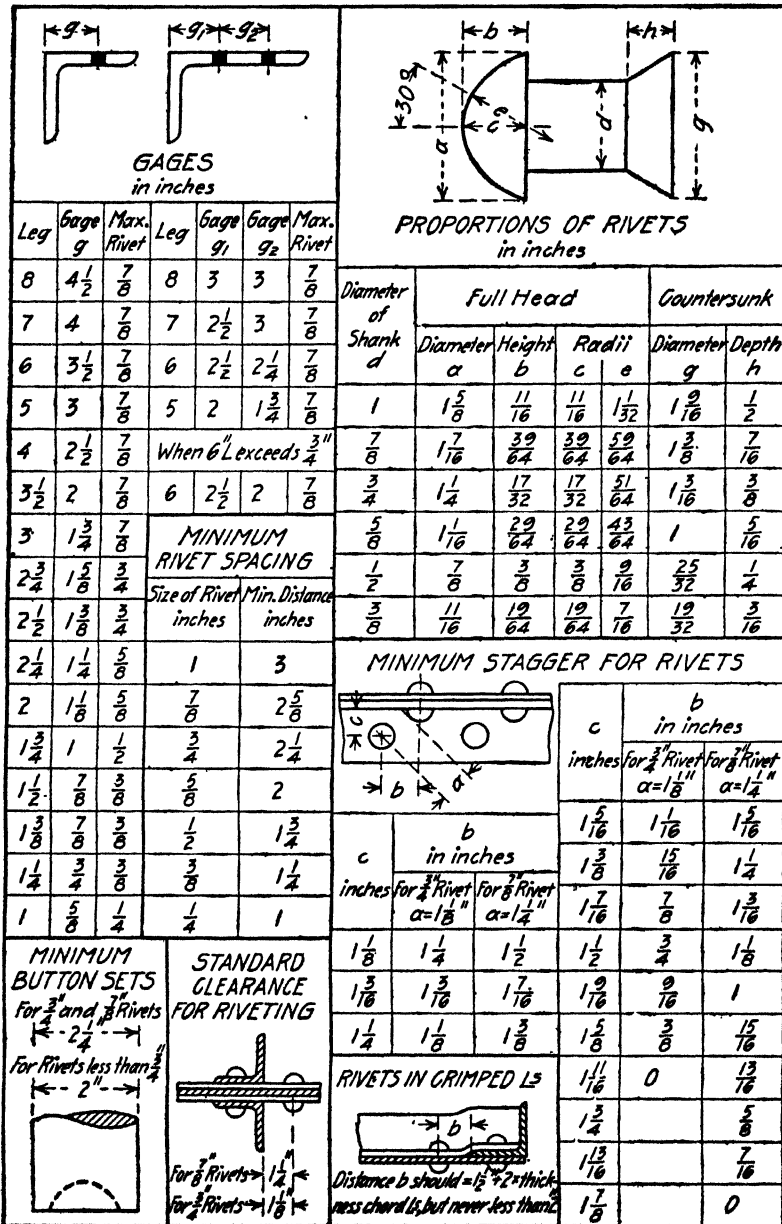 g g₁ g₂
GAGES
in inches
Leg Gage g Max. Rivet Leg Gage g₁ Gage g₂ Max. Rivet
8 4 1/2 7/8 8 3 3 7/8
7 4 7/8 7 2 1/2 3 7/8
6 3 1/2 7/8 6 2 1/2 2 1/4 7/8
5 3 7/8 5 2 1 3/4 7/8
4 2 1/2 7/8 When 6" L exceeds 3/4"
3 1/2 2 7/8 6 2 1/2 2 7/8
3 1 3/4 7/8
2 3/4 1 5/8 3/4
2 1/2 1 3/8 3/4
2 1/4 1 1/4 5/8
2 1 1/8 5/8
1 3/4 1 1/2
1 1/2 7/8 3/8
1 3/8 7/8 3/8
1 1/4 3/4 3/8
1 5/8 1/4
MINIMUM
RIVET SPACING
Size of Rivet inches Min. Distance inches
1 3
7/8 2 5/8
3/4 2 1/4
5/8 2
1/2 1 3/4
3/8 1 1/4
1/4 1
MINIMUM
BUTTON SETS
For 3/4" and 7/8" Rivets
2 1/4"
For Rivets less than 3/4"
2"
STANDARD
CLEARANCE
FOR RIVETING
For 7/8" Rivets 1 1/4"
For 3/4" Rivets 1 1/8"
b h
30° a c e d g
PROPORTIONS OF RIVETS
in inches
Diameter of Shank d Full Head Countersunk
Diameter a Height b Radii c e Diameter g Depth h
1 1 5/8 11/16 11/16 1 1/32 1 9/16 1/2
7/8 1 7/16 39/64 39/64 59/64 1 3/8 7/16
3/4 1 1/4 17/32 17/32 51/64 1 3/16 3/8
5/8 1 1/16 29/64 29/64 43/64 1 5/16
1/2 7/8 3/8 3/8 9/16 25/32 1/4
3/8 11/16 19/64 19/64 7/16 19/32 3/16
MINIMUM STAGGER FOR RIVETS
c
b a
c inches b in inches
For 3/4" Rivet a=1 1/8" For 7/8" Rivet a=1 1/4"
1 1/8 1 1/4 1 1/2
1 3/16 1 3/16 1 7/16
1 1/4 1 1/8 1 3/8
c inches b in inches
For 3/4" Rivet a=1 1/8" For 7/8" Rivet a=1 1/4"
1 5/16 1 1/16 1 5/16
1 3/8 15/16 1 1/4
1 7/16 7/8 1 3/16
1 1/2 3/4 1 1/8
1 9/16 9/16 1
1 5/8 3/8 15/16
1 11/16 0 13/16
1 3/4 5/8
1 13/16 7/16
1 7/8 0
RIVETS IN CRIMPED Ls
b
Distance b should = 1 1/2" + 2 × thick-
ness chord Ls, but never less than